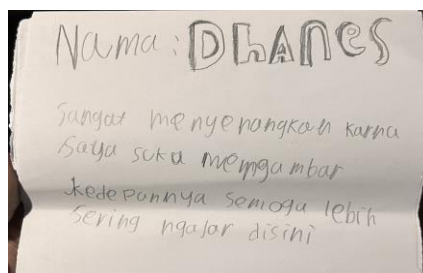 Nama : DhANES
Sangat menyenangkan karna
saya suka memgambar
kedepannya semoga lebih
sering ngajar disini